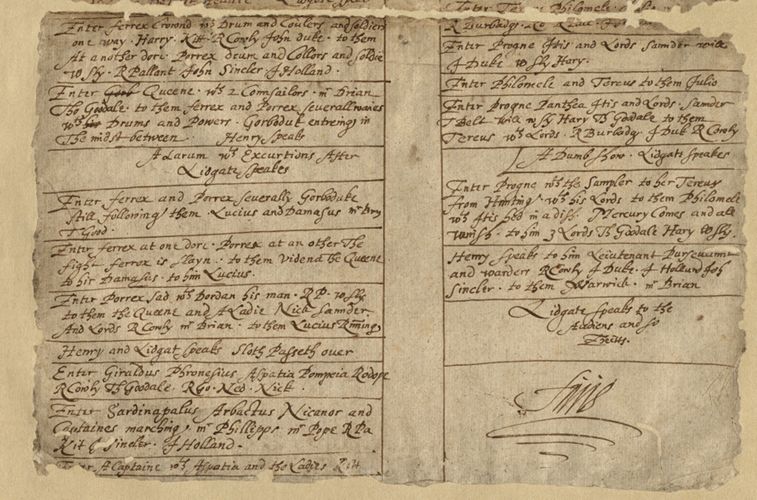 Enter Ferrex Crownd wth Drum and Coulers and soldiers
one way . Harry . Kitt . R Cowly John duke . to them
At an other dore . Porrex drum and Collors and soldie
W Sly . R Pallant . John Sincler . J Holland .
Enter Queene . wth 2 Counsailors . mr Brian
Tho Goodale . to them Ferrex and Porrex severall waies
wth Drums and Powers . Gorboduk entreing in
The midst between . Henry Speaks
A Larum wth Excurtions After
Lidgate speakes
Enter Ferrex and Porrex severally Gorboduke
still following them . Lucius and Damasus mr Bry
T Good .
Enter Ferrex at one dore . Porrex at an other The
fight Ferrex is slayn . to them Videna The Queene
to hir Damasus . to him Lucius .
Enter Porrex sad wth Dordan his man . R P . W Sly
to them the Queene and A Ladie Nick Saunder .
And Lords R Cowly mr Brian . to them Lucius Runing
Henry and Lidgat speaks Sloth Passeth over
Enter Giraldus Phronesius Aspatia Pompeia Rodope
R Cowly Th Goodale . R Go . Ned . Nick .
Enter Sardinapalus Arbactus Nicanor and
Captaines marching . mr Phillipps mr Pope R Pa
Kit J Sincler . J Holland .
A Captaine wth Aspatia and the Ladies Kitt
Philomele
R Burbadg
Enter Progne Itis and Lords Saunder will
J Duke W Sly Hary .
Enter Philomele and Tereus to them Julio
Enter Progne Panthea Itis and Lords . Saunder
T Belt will W Sly Hary Th Goodale to them
Tereus wth Lords . R Burbadg . J Duk R Cowly
A Dumb show . Lidgate speakes
Enter Progne wth the Sampler to her Tereus
from Hunting wth his Lords to them Philomele
wth Itis hed in a dish . Mercury Comes and all
Vanish . to him 3 Lords Th Goodale Hary W Sly .
Henry speaks to him Lieutenant Pursevaunt
and warders R Cowly J Duke . J Holland Joh
Sincler . to them Warwick . mr Brian
Lidgate speaks to the
Audiens and so
Exitts .
Finis